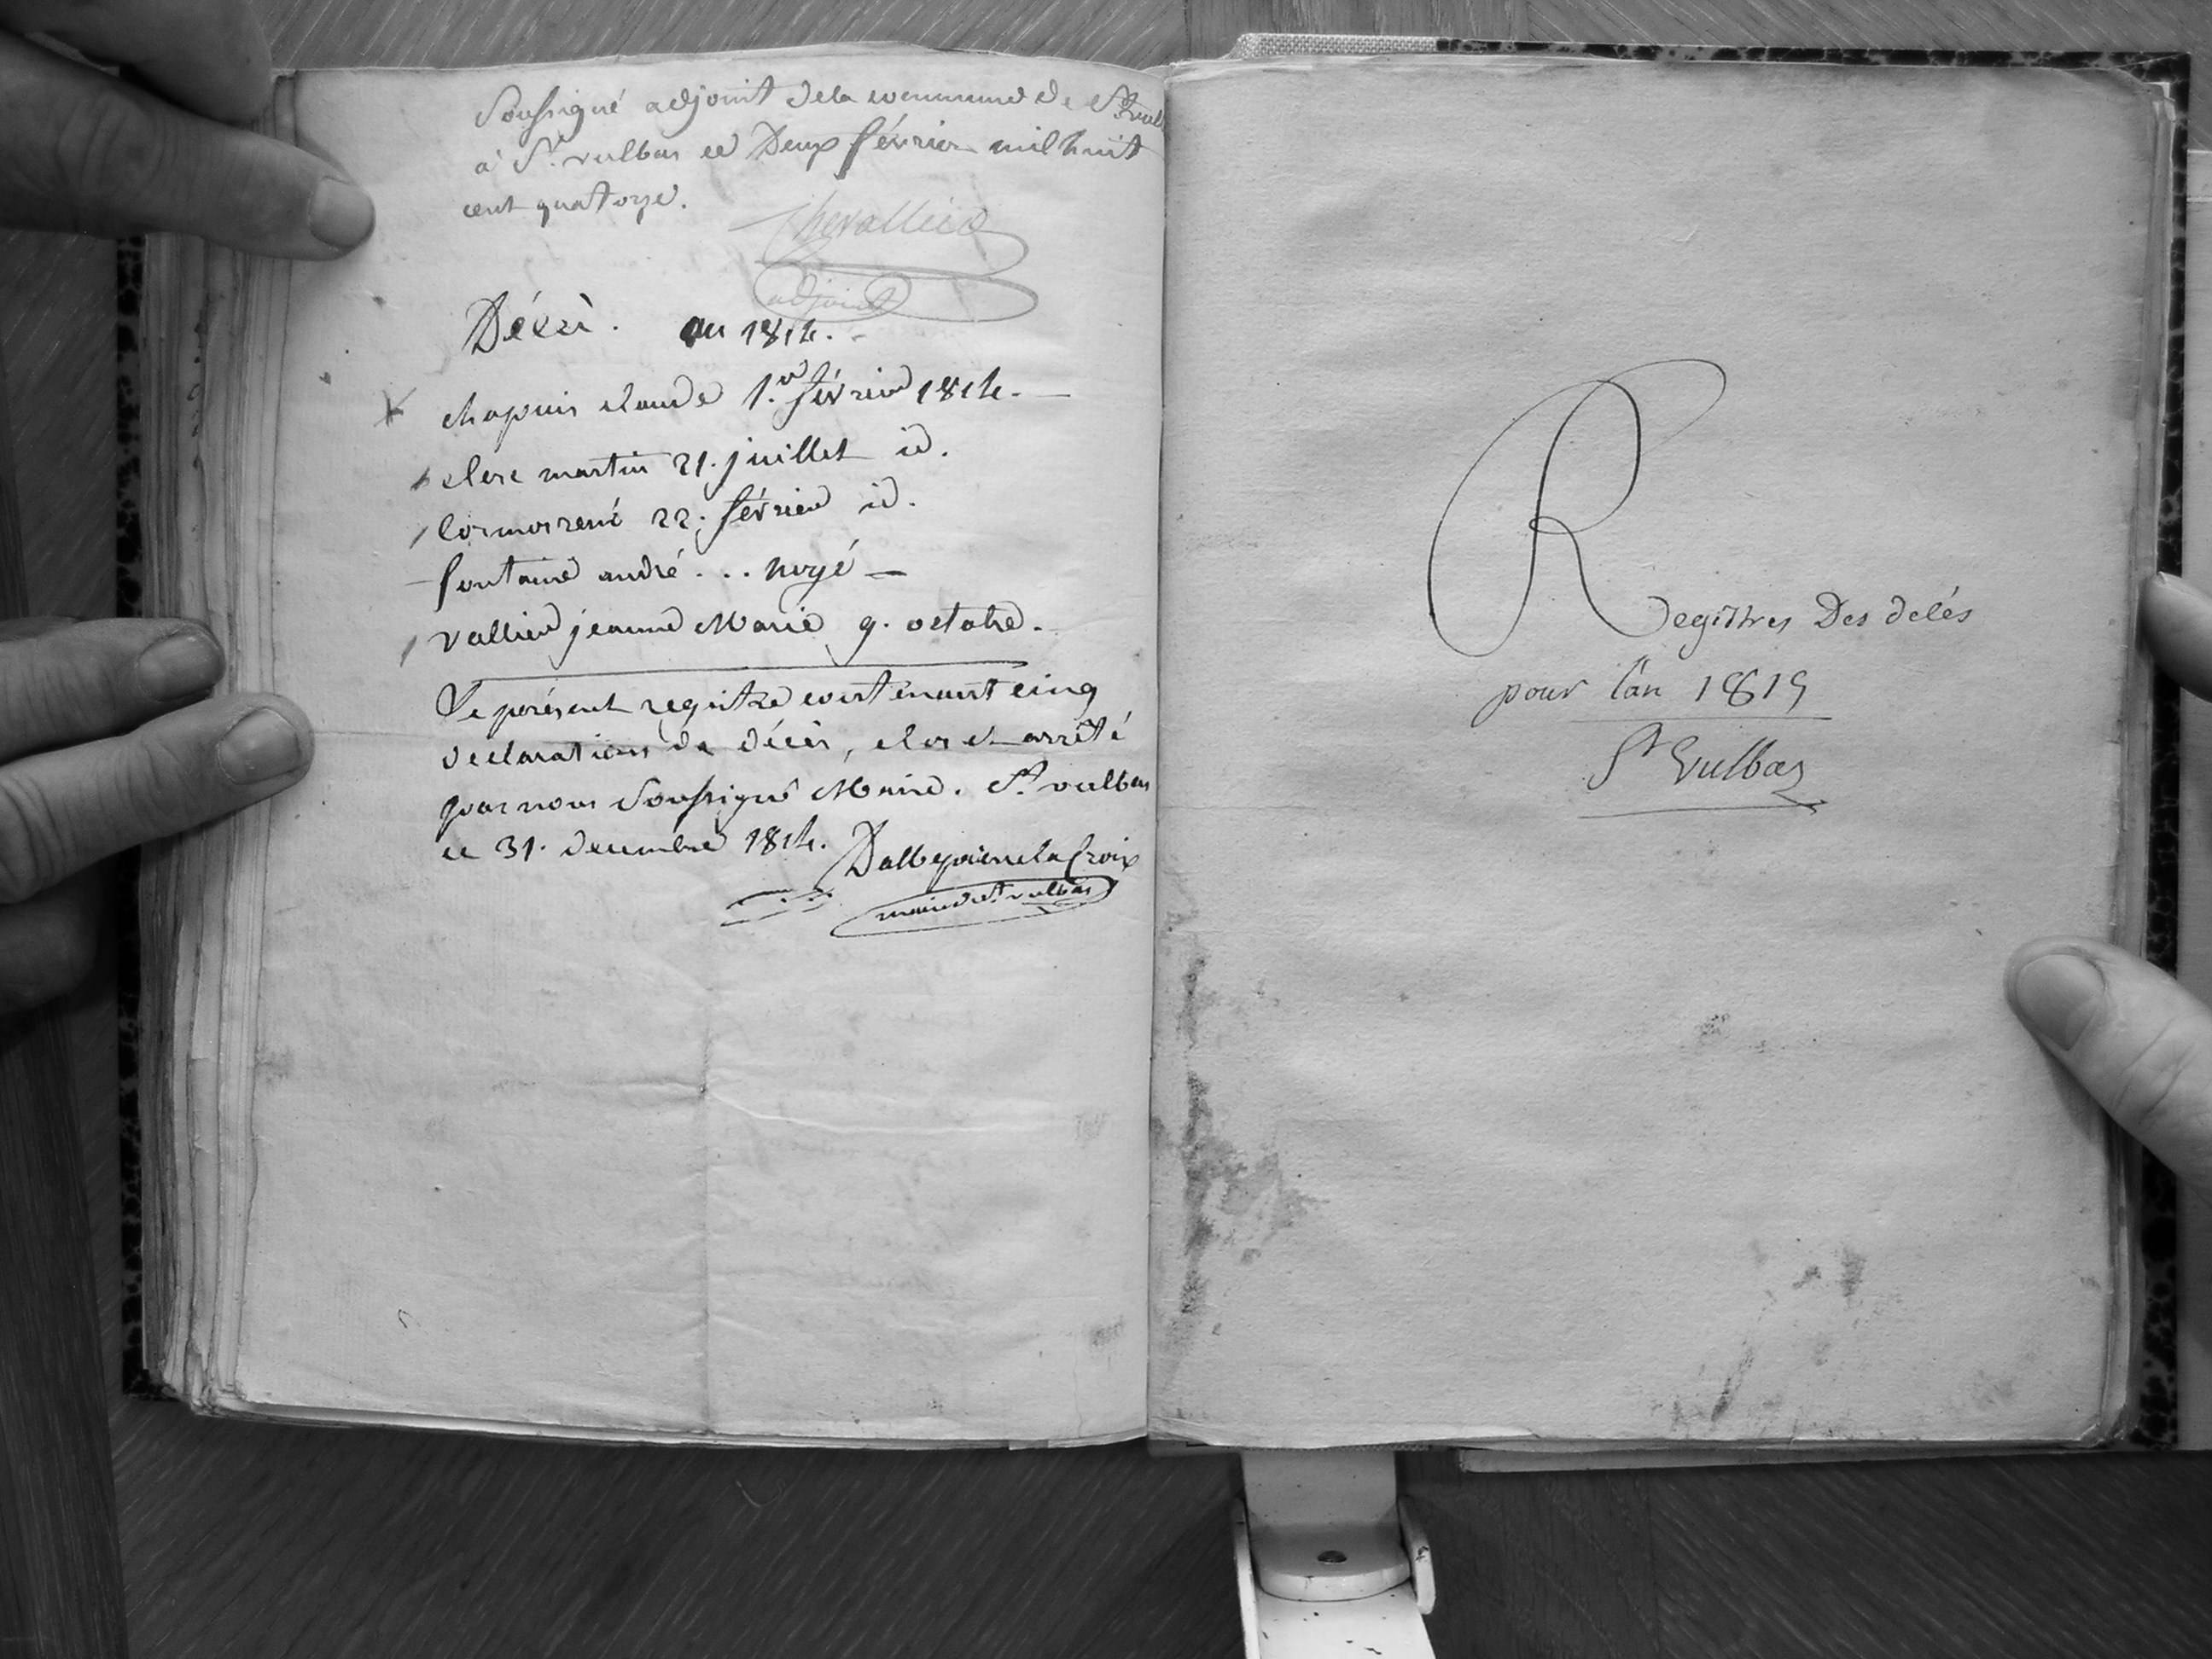 Soussigné adjoint dela commune de St. vulb
à St. vulbas ce Deux février mil huit
cent quatorze.
Chevallier
adjoint
Décès. an 1814.
chapuis claude 1.er février 1814.
clerc martin 21. juillet id.
Cormorrené 22. février id.
fontaine andré ... noyé —
vallier jeanne Marie 9. octobre.
Le présent registre contenant cinq
declarations de décès, clos et arrêté
par nous Soussigné Maire. St. vulbas
ce 31. decembre 1814.
maire de St. vulbas
Registres Des décés
pour l'an 1815
St Vulbas